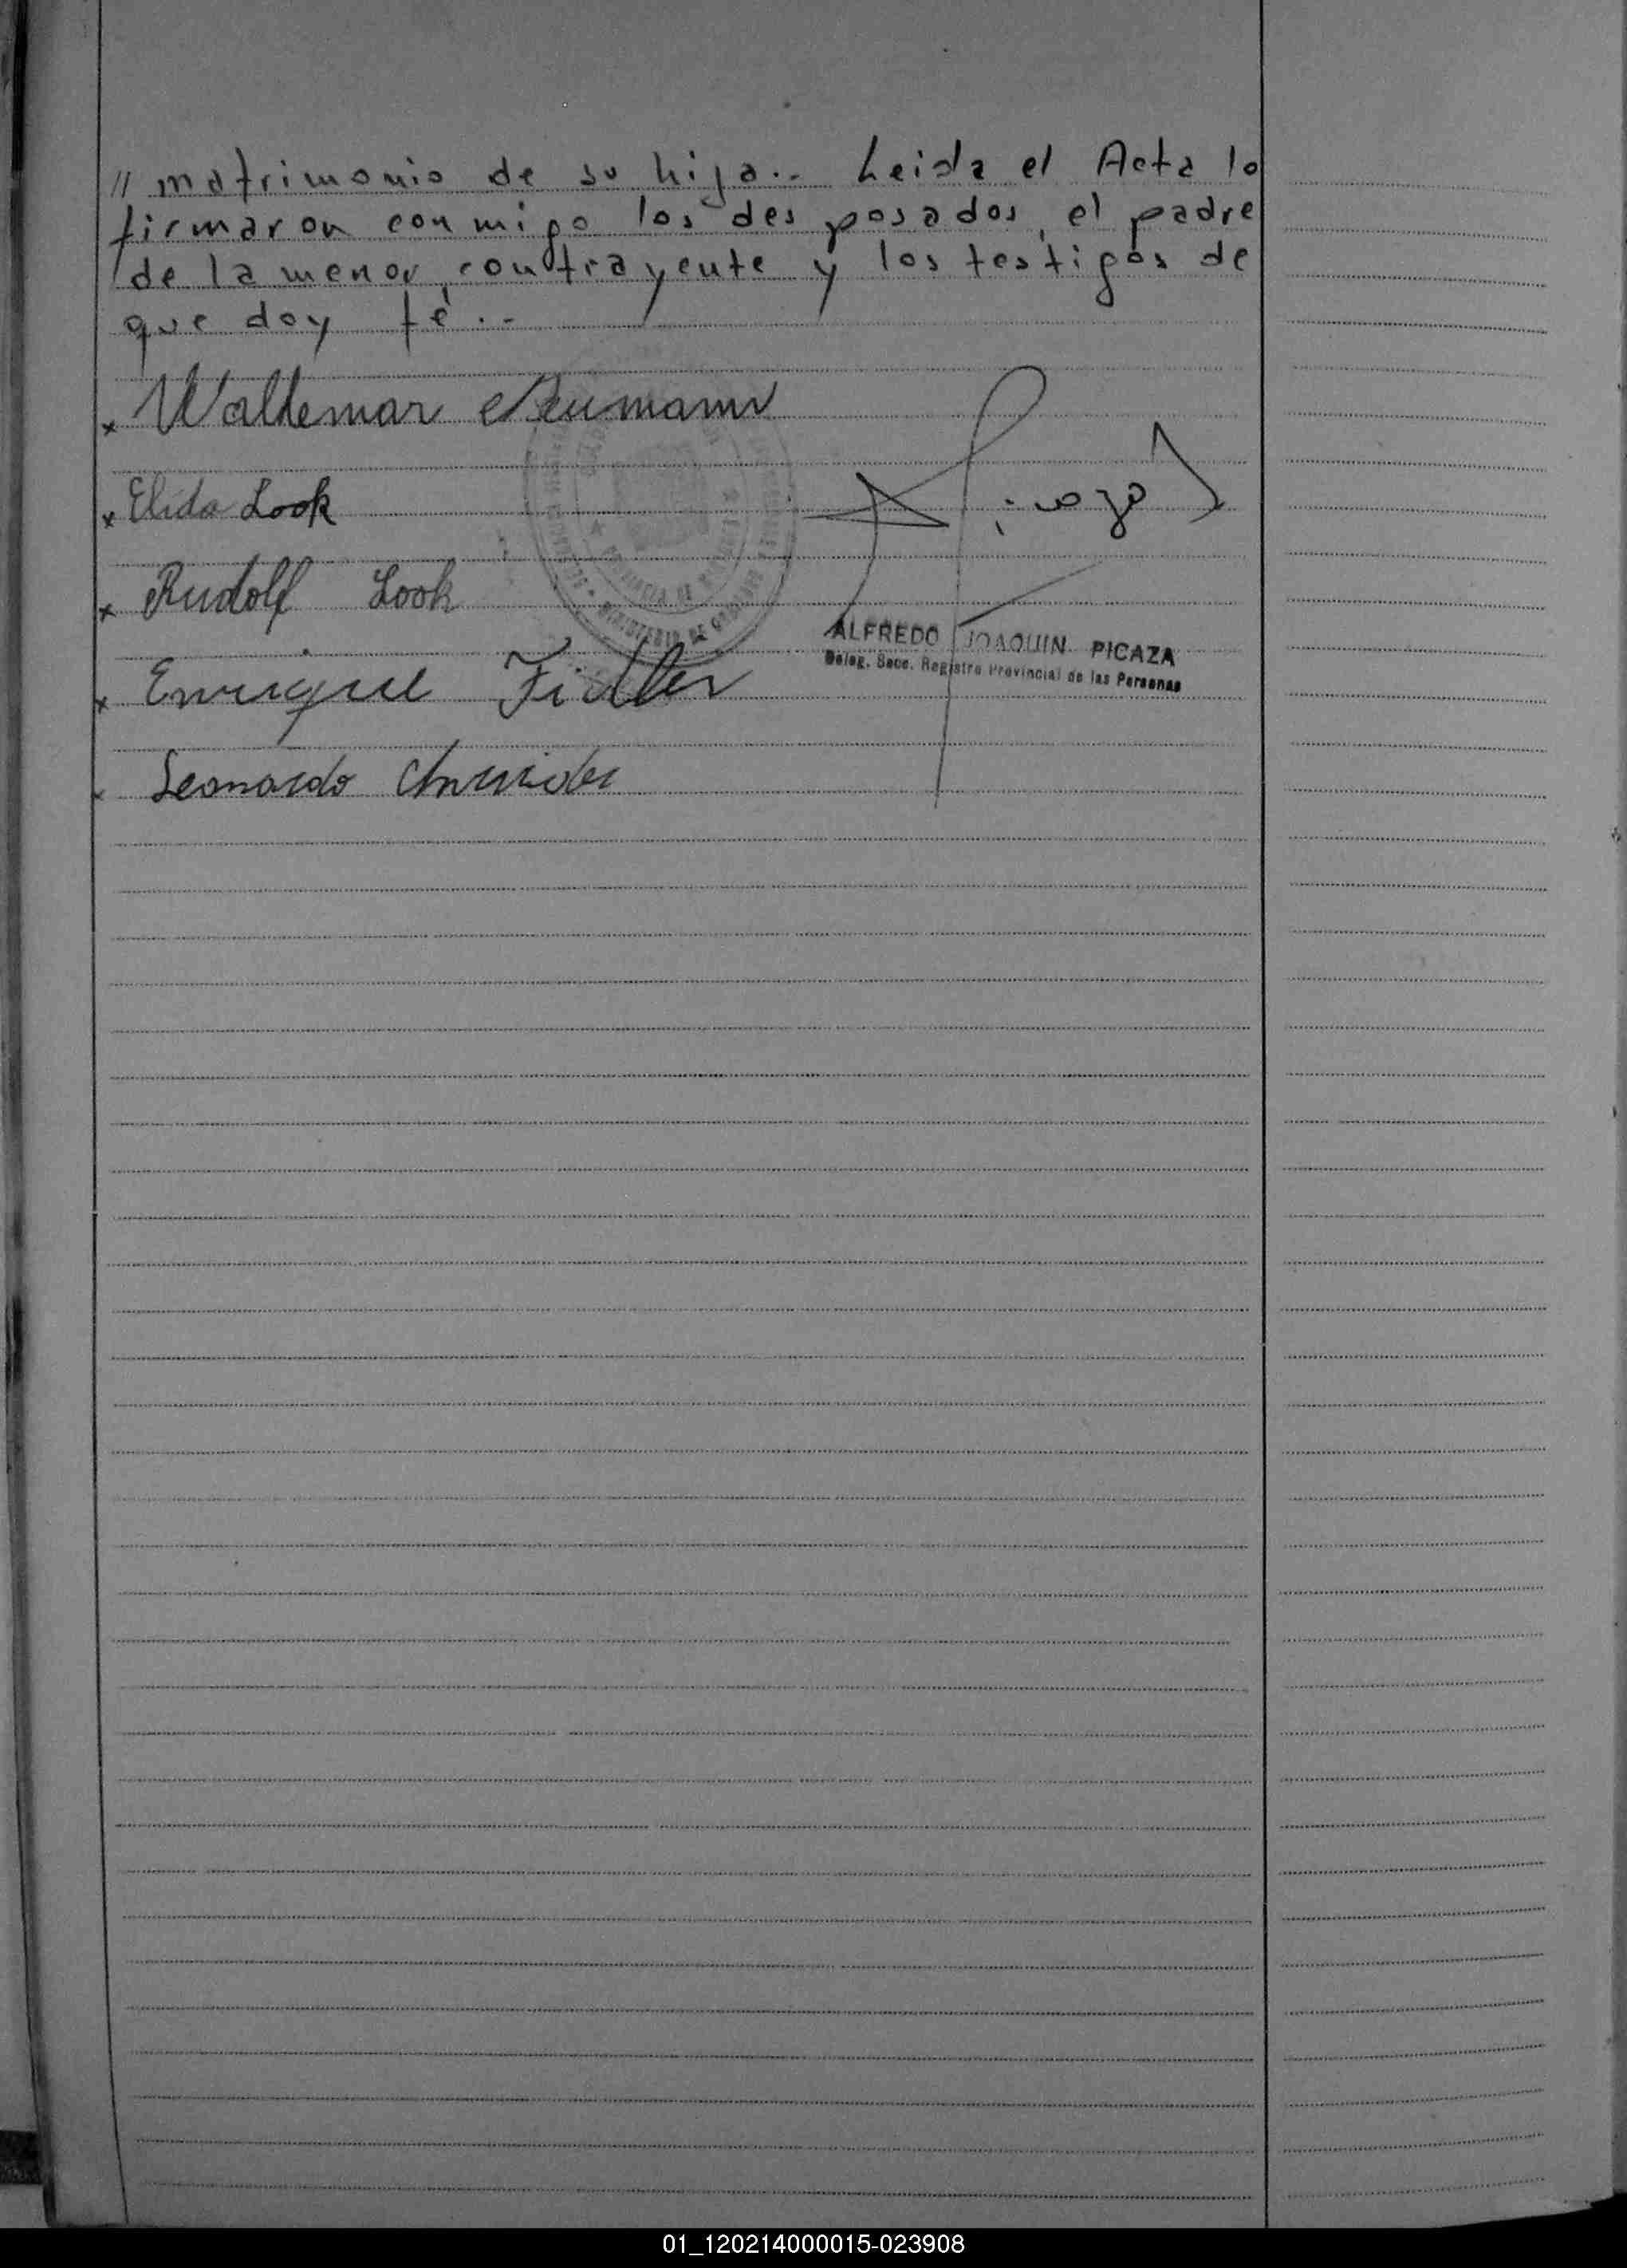 // matrimonio de su hija.- Leida el Acta lo
firmaron conmigo los desposados, el padre
de la menor contrayente y los testigos de
que doy fé.-
x Waldemar Neumann
x Elida Look
x Rudolf Look
x Enrique Fidler
x Leonardo
A Picaza
ALFREDO JOAQUIN PICAZA
Deleg. Secc. Registro Provincial de las Personas
MINISTERIO DE
01_120214000015-023908